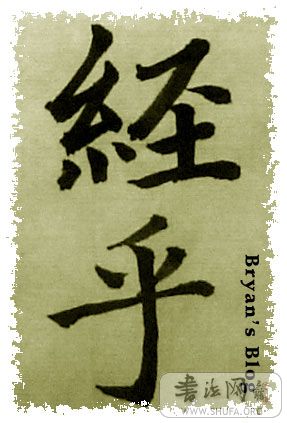 経乎
Bryan's Blog
書法网
WWW.SHUFA.ORG